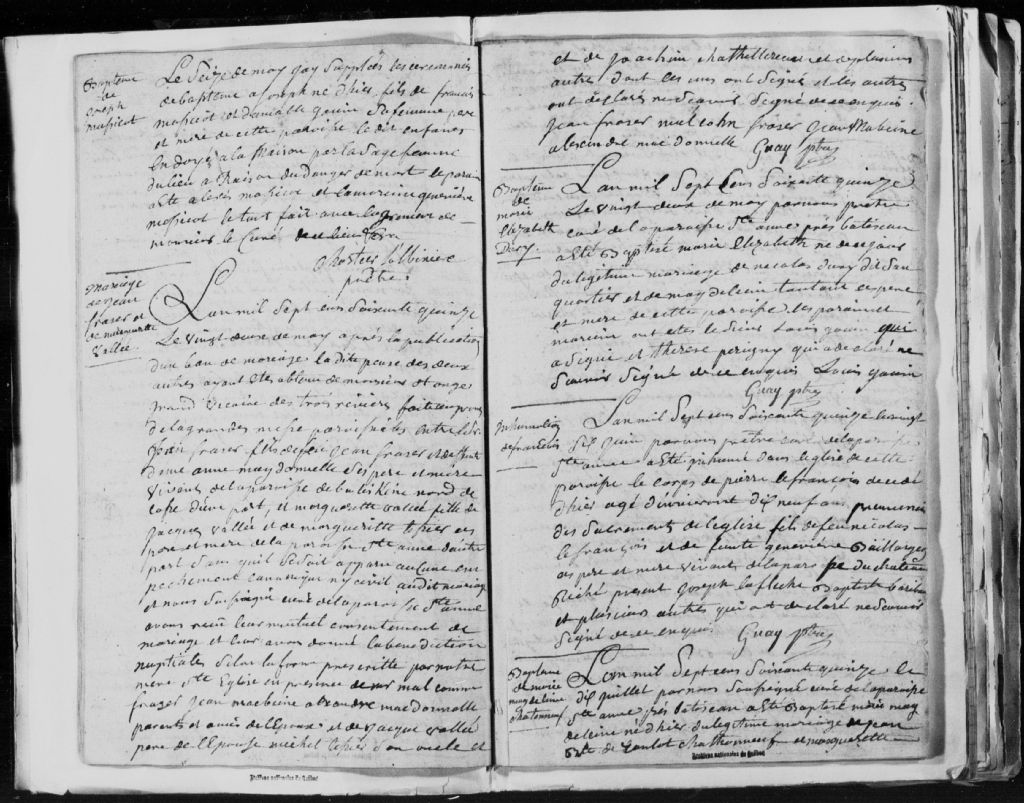 Bapteme
de
joseph
massicot
Le Seize de may jay Supplées les ceremonies
de bapteme a joseph né d'hier fils de francois
massicot et damable gouin Sa femme pere
et mere de cette paroisse le dit enfant
Endoyé a la Maison par la Sage femme
du lieu a Raison du danger de mort le parain
a Eté alexis massicot et la maraine genevieve
massicot le tout fait avec la permission de
monsieur le Curé de ce lieu
prêtre
mariage
de jean
fraser et
de marguerite
vallée
Lan mil Sept cens Soixante quinze
Le vingt deux de may apres la publication
dun ban de mariage la dispense des deux
autres ayant Eté obtenu de monsieur St onge
grand vicaire des trois rivieres faite au prone
de la grande messe paroissiales entre le Sr
jean fraser fils de feu jean fraser et de
dame anne may donnelle Ses pere et mere
vivant de la paroisse de
coste d'une part, et marguerite vallée fille de
jacques vallée et de marguerite tessier ces
pere et mere de la paroisse Ste anne dautre
part Sans quil Se Soit apparu aucune em
pechement canonique ny civil au dit mariage
et nous Soussigné curé de la paroisse Ste anne
avons recu leur mutuel consentement de
mariage et leur avons donné la benediction
nuptiales Selon la forme prescritte par notre
mere Ste Eglise en presence de mr mal come
frazer jean macbaine alexandre macdonnelle
parents et amis de l'Epoux et de jacque vallée
pere de l'Epouse michel tessier Son oncle et
Archives nationales du Québec
et de joachim et de plusieurs
autres dont les uns ont Signé et les autres
ont declaré ne Scavoir Signé de ce enquis.
jean fraser malcolm fraser jean Macbeine
alexandre mac donnelle Guay ptre
Bapteme
de
marie
Elizabeth
Dury.
Lan mil Sept Cens Soixante quinze
Le vingt deux de may par nous prêtre
curé de la paroisse Ste anne près batiscan
a Eté Baptisé marie Elizabeth né de ce jour
du legitime mariage de nicolas dury dit San
quartier et de magdeleine Ses pere
et mere de cette paroisse les parain et
maraine ont eté le Sieur Louis gouin qui
a Signé et therese perigny qui a declaré ne
Scavoir Signé de ce enquis Louis gouin
Guay ptre
Inhumation
de francois
Lan mil Sept cens Soixante quinze le vingt
Six juin par nous prêtre curé de la paroisse
Ste anne a Eté inhumé dans leglise de cette
paroisse le corps de pierre le francois decedé
d'hier agé d'environt dix neuf an
des Sacrements de l'eglise fils de feu nicolas
le françois et de feuite genevieve Baillargeo
ces pere et mere vivant de la paroisse du chateau
Riché present joseph la fleche Baptiste
et plusieurs autres qui ont declaré ne Scavoir
Signé de ce enquis Guay ptre
Bapteme
de marie
magdeleine
chatonneuf
Lan mil Sept cens Soixante quinze le
dix juillet par nous Soussigné curé de la paroisse
Ste anne près batiscan a Eté Baptisé marie mag
deleine né d'hier du legitime mariage de jean
Bte de chathonneuf et marguerite
Archives nationales du Québec